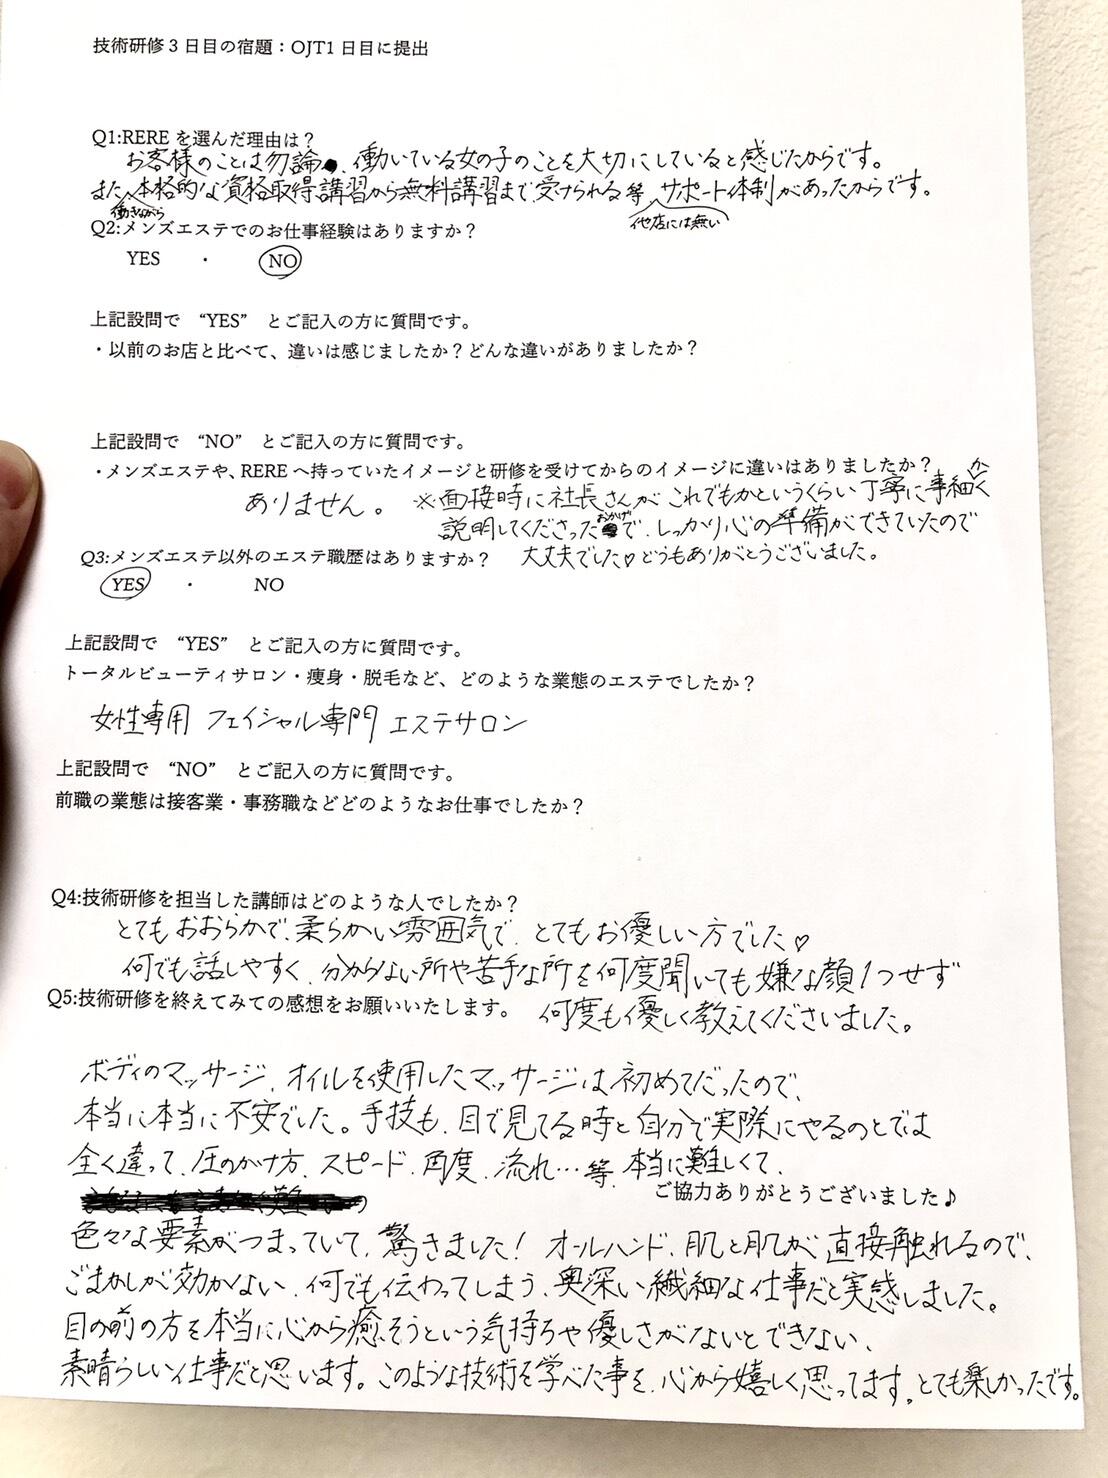 技術研修３日目の宿題：OJT1日目に提出
Q1:RERE を選んだ理由は？
お客様のことは勿論、働いている女の子のことを大切にしていると感じたからです。
また、本格的な資格取得講習から無料講習まで受けられる等 サポート体制があったからです。
働きながら
他店には無い
Q2:メンズエステでのお仕事経験はありますか？
YES ・ NO
上記設問で “YES” とご記入の方に質問です。
・以前のお店と比べて、違いは感じましたか？どんな違いがありましたか？
上記設問で “NO” とご記入の方に質問です。
・メンズエステや、RERE へ持っていたイメージと研修を受けてからのイメージに違いはありましたか？
ありません。 ※面接時に社長さんが これでもかというくらい丁寧に事細かく
説明してくださったおかげで、しっかり心の準備ができていたので
Q3:メンズエステ以外のエステ職歴はありますか？ 大丈夫でした♡どうもありがとうございました。
YES ・ NO
上記設問で “YES” とご記入の方に質問です。
トータルビューティサロン・痩身・脱毛など、どのような業態のエステでしたか？
女性専用 フェイシャル専門 エステサロン
上記設問で “NO” とご記入の方に質問です。
前職の業態は接客業・事務職などどのようなお仕事でしたか？
Q4:技術研修を担当した講師はどのような人でしたか？
とてもおおらかで、柔らかい雰囲気で、とてもお優しい方でした♡
何でも話しやすく、分からない所や苦手な所を何度聞いても嫌な顔1つせず
Q5:技術研修を終えてみての感想をお願いいたします。 何度も優しく教えてくださいました。
ボディのマッサージ、オイルを使用したマッサージは初めてだったので、
本当に本当に不安でした。手技も、目で見てる時と自分で実際にやるのとでは
全く違って、圧のかけ方、スピード、角度、流れ…等、本当に難しくて、
ご協力ありがとうございました♪
色々な要素がつまっていて、驚きました！ オールハンド、肌と肌が直接触れるので、
ごまかしが効かない、何でも伝わってしまう、奥深い繊細な仕事だと実感しました。
目の前の方を本当に心から癒そうという気持ちや優しさがないとできない、
素晴らしい仕事だと思います。このような技術を学べた事を、心から嬉しく思ってます。とても楽しかったです。